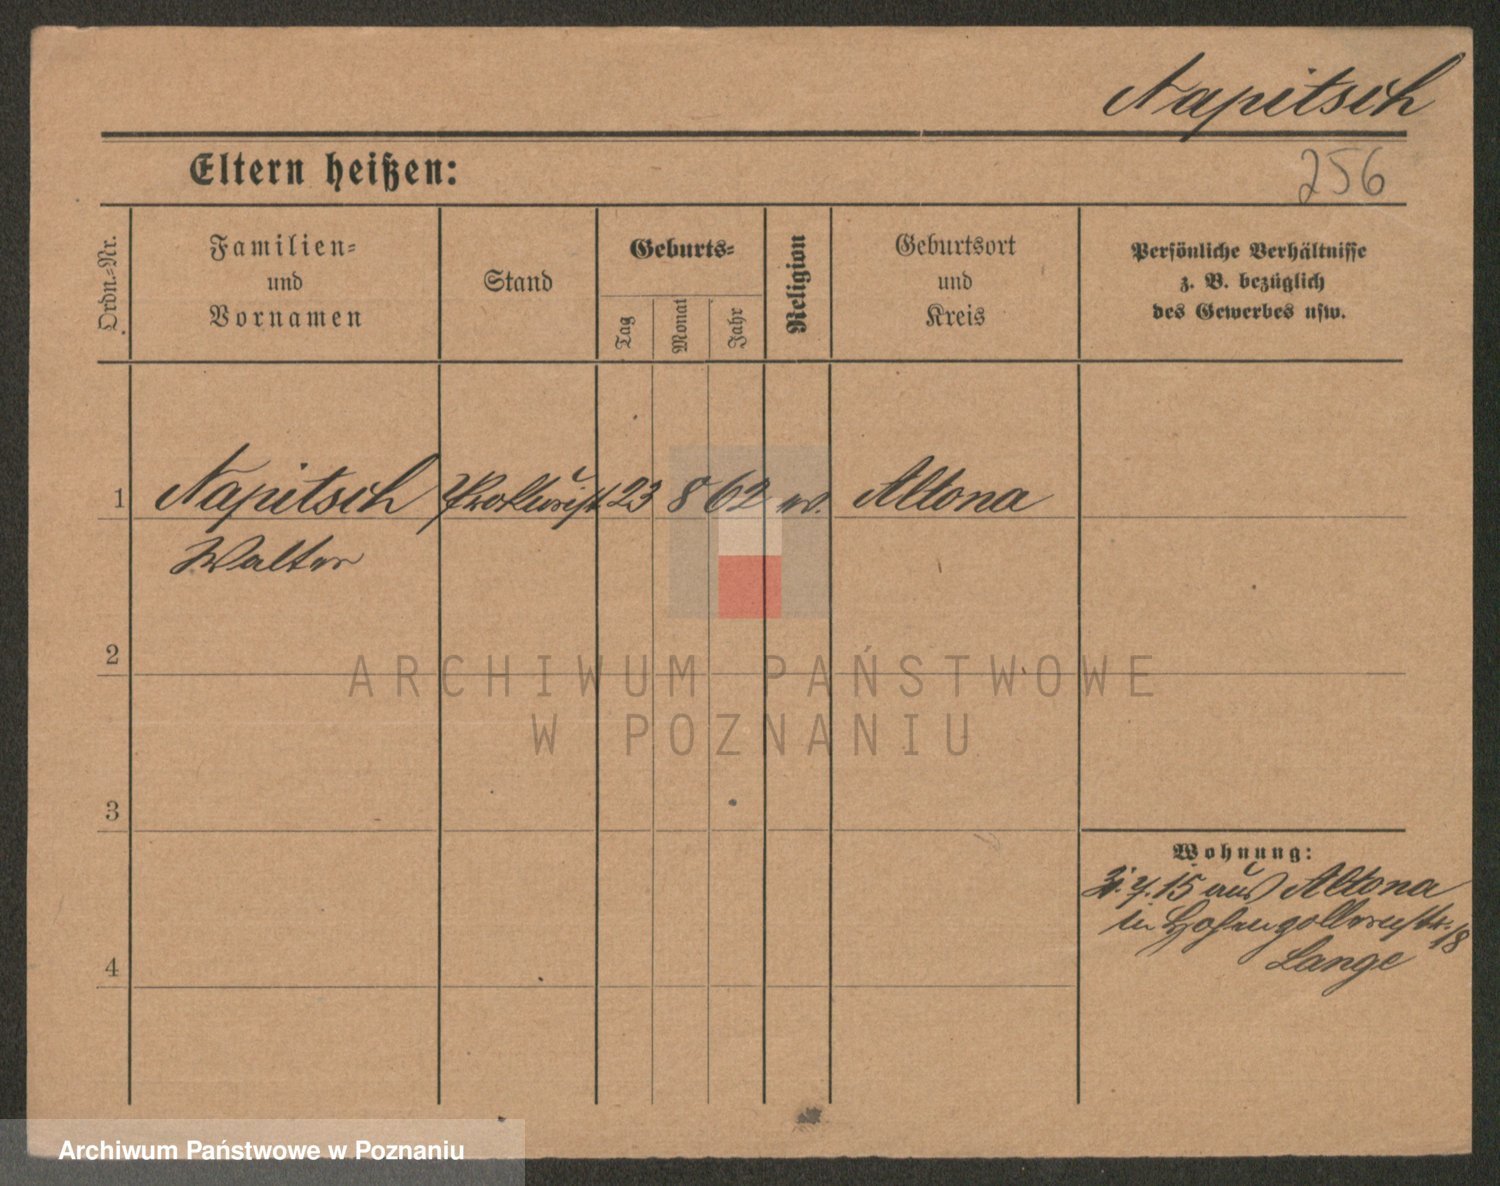 Napitsch
Eltern heißen:
256
Ordn.-Nr.
Familien-
und
Vornamen
Stand
Geburts-
Tag
Monat
Jahr
Religion
Geburtsort
und
Kreis
Persönliche Verhältnisse
z. B. bezüglich
des Gewerbes usw.
1 Napitsch Prokurist 23 8 62 ev. Altona
Walter
2
3
4
Wohnung:
15 aus Altona
in Hohenzollernstr. 18
Lange
ARCHIWUM PAŃSTWOWE
W POZNANIU
Archiwum Państwowe w Poznaniu